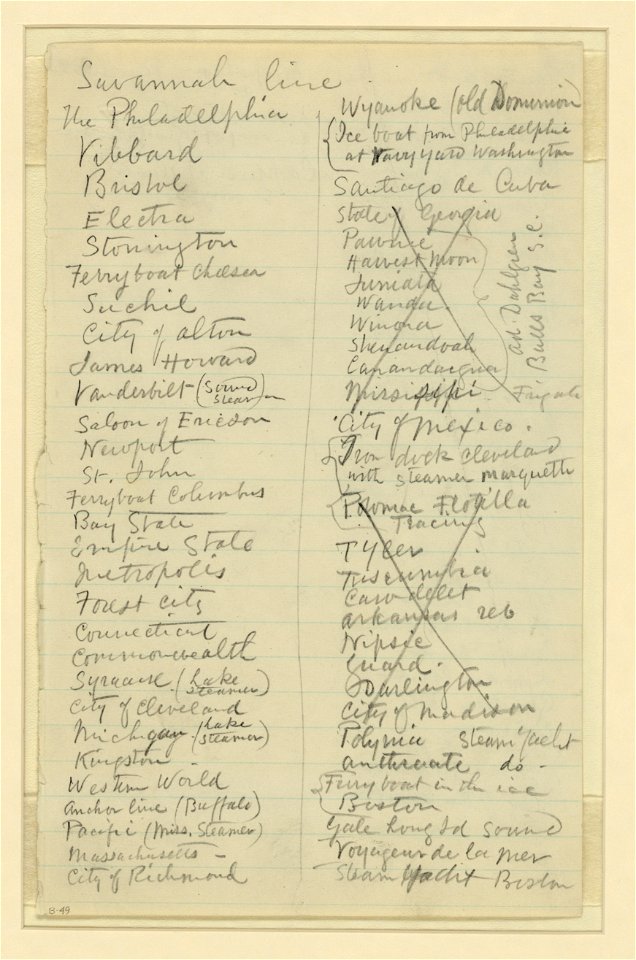 Savannah line
The Philadelphia
Vibbard
Bristol
Electra
Stonington
Ferryboat Chelsea
Suchil
City of Alton
James Howard
Vanderbilt (Sound Steamer)
Saloon of Ericson
Newport
St. John
Ferryboat Columbus
Bay State
Empire State
Metropolis
Forest City
Connecticut
Commonwealth
Syracuse (Lake Steamer)
City of Cleveland
Michigan (Lake Steamer)
Kingston -
Western World
Anchor line (Buffalo)
Pacific (Miss. Steamer)
Massachusetts -
City of Richmond
Wyanoke (Old Dominion)
Ice boat from Philadelphia
at Navy Yard Washington
Santiago de Cuba
State of Georgia
Pawnee
Harvest Moon
Juniata
Wanda
Winona
Shenandoah
Canandaigua
Mississippi Frigate
Ad. Dahlgren
Bulls Bay S.C.
City of Mexico.
Iron dock Cleveland
with steamer Marquette
Potomac Flotilla
Tracing
Tyler
Tuscumbia
Carondelet
Arkansas reb
Nipsic
Guard.
Darlington
City of Madison
Polynia Steam Yacht
Anthracite do -
Ferryboat in the ice
Boston
Gale Long Id Sound
Voyageur de la Mer
Steam Yacht Boston
B-49